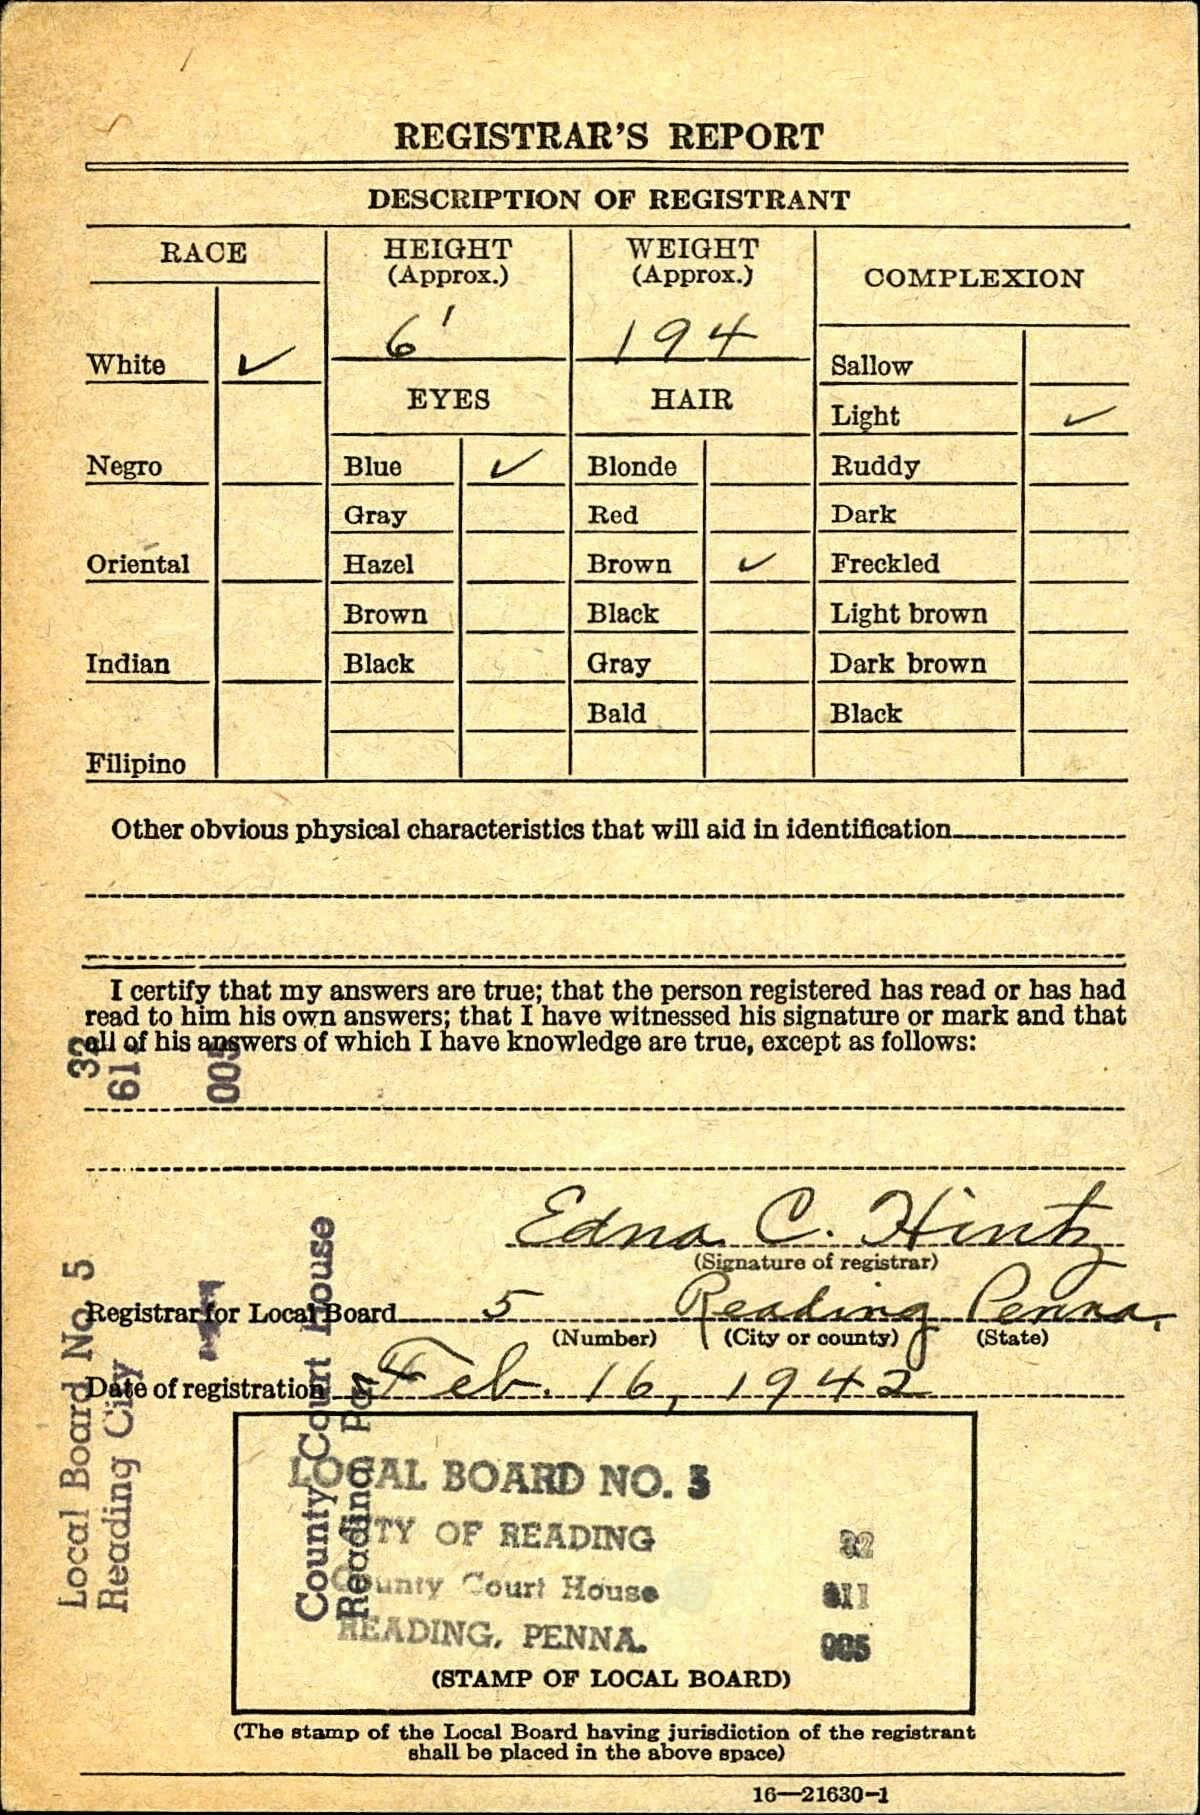 REGISTRAR'S REPORT
DESCRIPTION OF REGISTRANT
RACE
HEIGHT
(Approx.)
WEIGHT
(Approx.)
COMPLEXION
6'
194
White ✓
Sallow
EYES
HAIR
Light ✓
Negro
Blue ✓
Blonde
Ruddy
Gray
Red
Dark
Oriental
Hazel
Brown ✓
Freckled
Brown
Black
Light brown
Indian
Black
Gray
Dark brown
Bald
Black
Filipino
Other obvious physical characteristics that will aid in identification
I certify that my answers are true; that the person registered has read or has had
read to him his own answers; that I have witnessed his signature or mark and that
all of his answers of which I have knowledge are true, except as follows:
32
005
Edna C. Hintz
(Signature of registrar)
Registrar for Local Board 5 Reading Penna.
(Number) (City or county) (State)
Date of registration Feb. 16, 1942
Local Board No. 5
Reading City
County Court House
Reading
LOCAL BOARD NO. 5
CITY OF READING
32
County Court House
011
READING, PENNA.
005
(STAMP OF LOCAL BOARD)
(The stamp of the Local Board having jurisdiction of the registrant
shall be placed in the above space)
16—21630-1